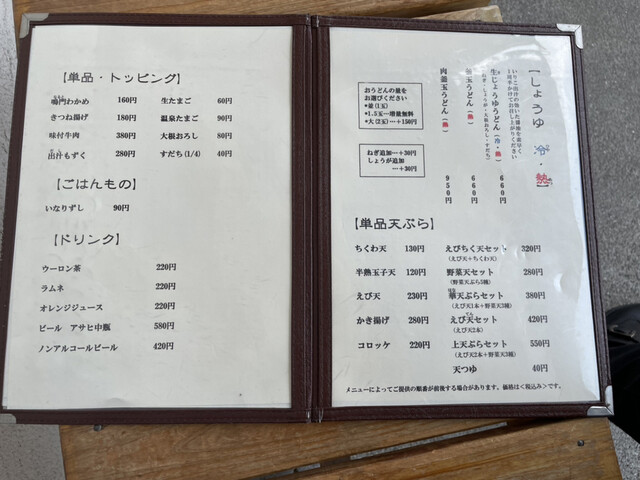 【単品・トッピング】
鳴門わかめ 160円 生たまご 60円
きつね揚げ 180円 温泉たまご 90円
味付牛肉 380円 大根おろし 80円
出汁もずく 280円 すだち(1/4) 40円
【ごはんもの】
いなりずし 90円
【ドリンク】
ウーロン茶 220円
ラムネ 220円
オレンジジュース 220円
ビール アサヒ中瓶 580円
ノンアルコールビール 420円
【しょうゆ 冷・熱】
いりこ出汁の効いた醤油を
1周半かけてお召し上がりください
生じょうゆうどん(冷・熱) 660円
ねぎ・しょうが・大根おろし・すだち
玉うどん(熱) 660円
肉釜玉うどん(熱) 950円
おうどんの量を
お選びください
*並(1玉)
*1.5玉…増量無料
*大(2玉)…+150円
ねぎ追加…+30円
しょうが追加
…+30円
【単品天ぷら】
ちくわ天 130円 えびちく天セット 320円
(えび天+ちくわ天)
半熟玉子天 120円 野菜天セット 280円
(野菜天ぷら5種)
えび天 230円 華天ぷらセット 380円
(えび天1本+野菜天3種)
かき揚げ 280円 えび天セット 420円
(えび天2本)
コロッケ 220円 上天ぷらセット 550円
(えび天2本+野菜天3種)
天つゆ 40円
メニューによってご提供の順番が前後する場合があります。価格は<税込み>です。